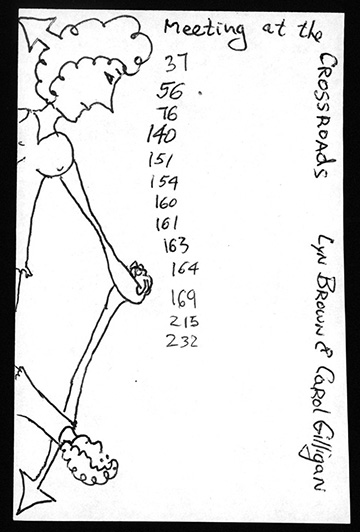 Meeting at the
CROSSROADS
Lyn BROWN & CAROL Gilligan
37
56
76
140
151
154
160
161
163
164
169
215
232